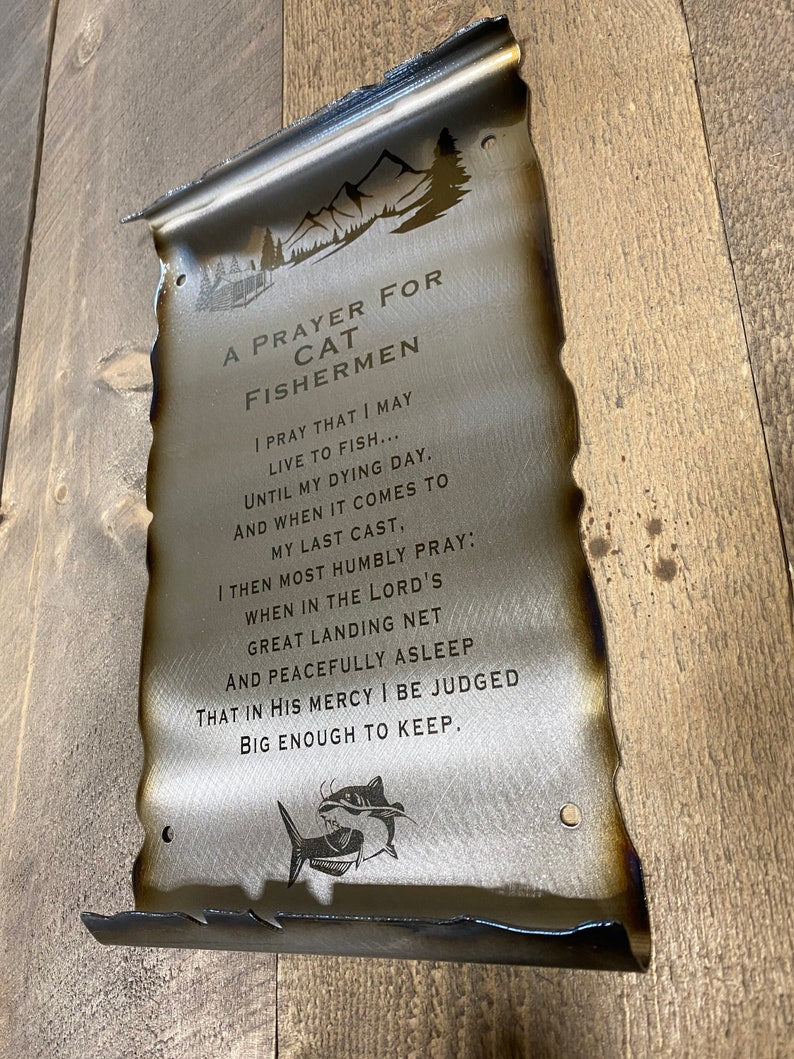 A Prayer For
CAT
Fishermen
I pray that I may
live to fish...
Until my dying day.
And when it comes to
my last cast,
I then most humbly pray:
when in the Lord's
great landing net
And peacefully asleep
That in His mercy I be judged
Big enough to keep.